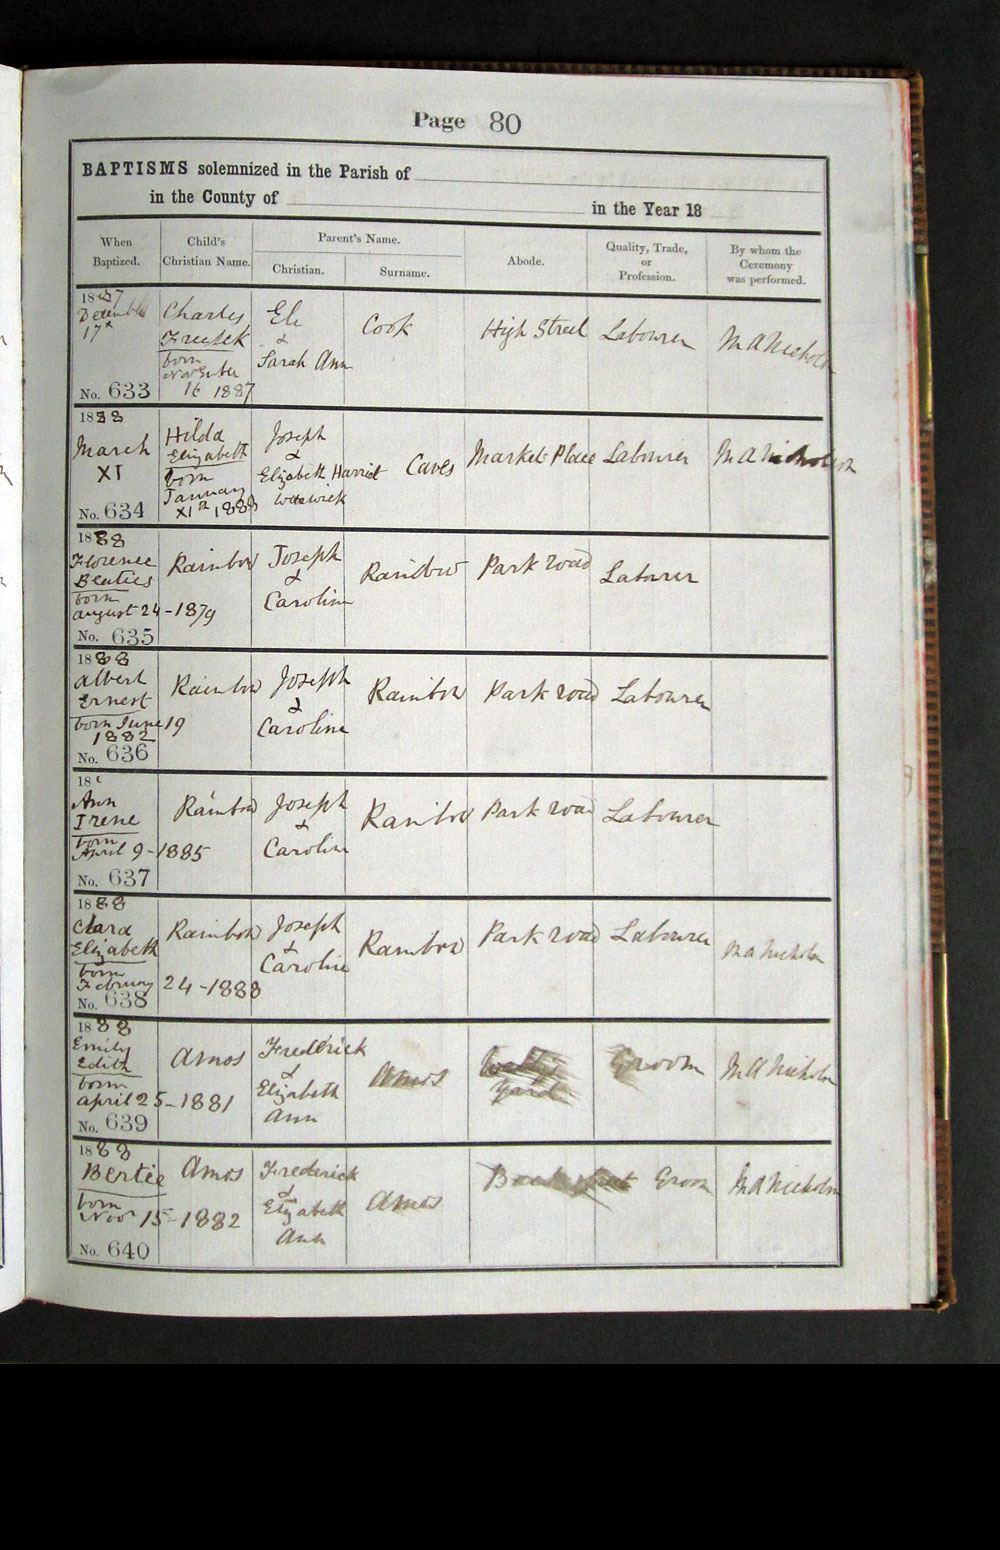 Page 80
BAPTISMS solemnized in the Parish of
in the County of in the Year 18
When Baptized.
Child's Christian Name.
Parent's Name.
Christian.
Surname.
Abode.
Quality, Trade, or Profession.
By whom the Ceremony was performed.
1887
December
17th
No. 633
Charles
born
November
16 1887
Eli
&
Sarah Ann
Cook
High Street
Labourer
M A Nicholson
1888
March
XI
No. 634
Hilda
Elizabeth
born
January
XIth 1888
Joseph
&
Elizabeth Harriet
Caves
Market Place
Labourer
M A Nicholson
1888
Florence
born
august 24 - 1879
No. 635
Rainbow
Joseph
&
Caroline
Rainbow
Park road
Labourer
1888
Albert
Ernest
born June 19
1882
No. 636
Rainbow
Joseph
&
Caroline
Rainbow
Park road
Labourer
18
Ann
Irene
born
April 9 - 1885
No. 637
Rainbow
Joseph
&
Caroline
Rainbow
Park road
Labourer
1888
Clara
Elizabeth
born
February 24 - 1888
No. 638
Rainbow
Joseph
&
Caroline
Rainbow
Park road
Labourer
M A Nicholson
1888
Emily
Edith
born
april 25 - 1881
No. 639
Amos
Frederick
&
Elizabeth
Ann
Amos
Yard
Groom
M A Nicholson
1888
Bertie
born
Novr 15 - 1882
No. 640
Amos
Frederick
&
Elizabeth
Ann
Amos
Groom
M A Nicholson